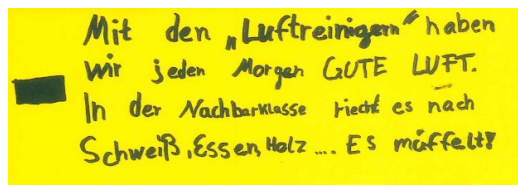 Mit den „Luftreinigern" haben
wir jeden Morgen GUTE LUFT.
In der Nachbarklasse riecht es nach
Schweiß, Essen, Holz .... Es müffelt!